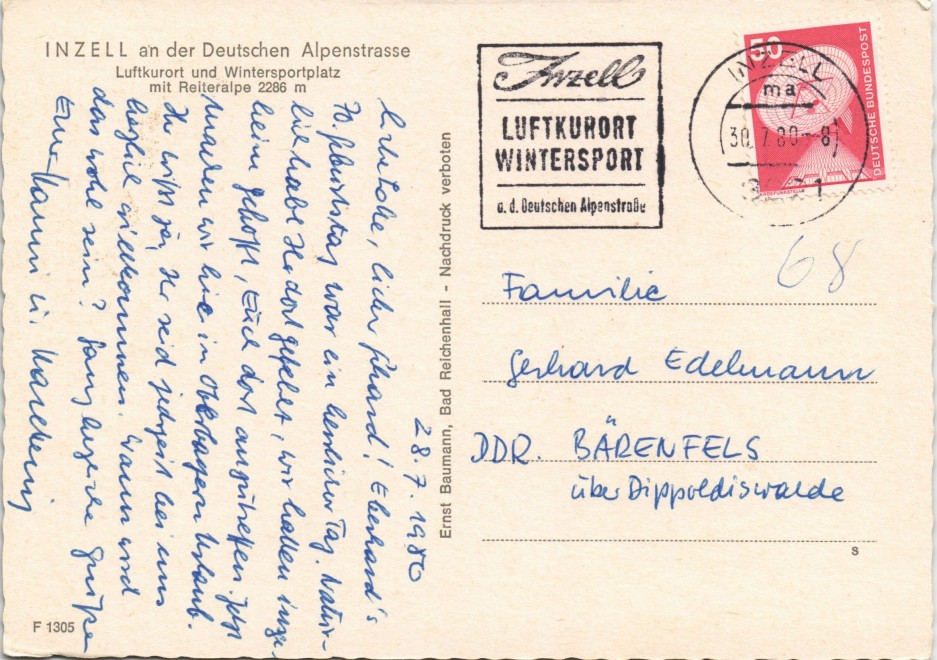 INZELL an der Deutschen Alpenstrasse
Luftkurort und Wintersportplatz
mit Reiteralpe 2286 m
28.7.1980
Liebe Lotte, lieber Gerhard! Eberhard's
70. Geburtstag war ein herrlicher Tag. Natür-
lich habe Ihr dort gefehlt, wir hatten insge-
heim gehofft, Euch dort anzutreffen. Jetzt
machen wir hier in Oberbayern Urlaub.
Ihr wißt ja, Ihr seid jederzeit bei uns
herzlich willkommen. Wann wird
das wohl sein? Ganz herzliche Grüße
Eure Hanni u.
F 1305
Ernst Baumann, Bad Reichenhall - Nachdruck verboten
Inzell
LUFTKURORT
WINTERSPORT
a. d. Deutschen Alpenstraße
INZELL
ma
30.7.80-8
50
DEUTSCHE BUNDESPOST
68
Familie
Gerhard Edelmann
DDR. BÄRENFELS
über Dippoldiswalde
s